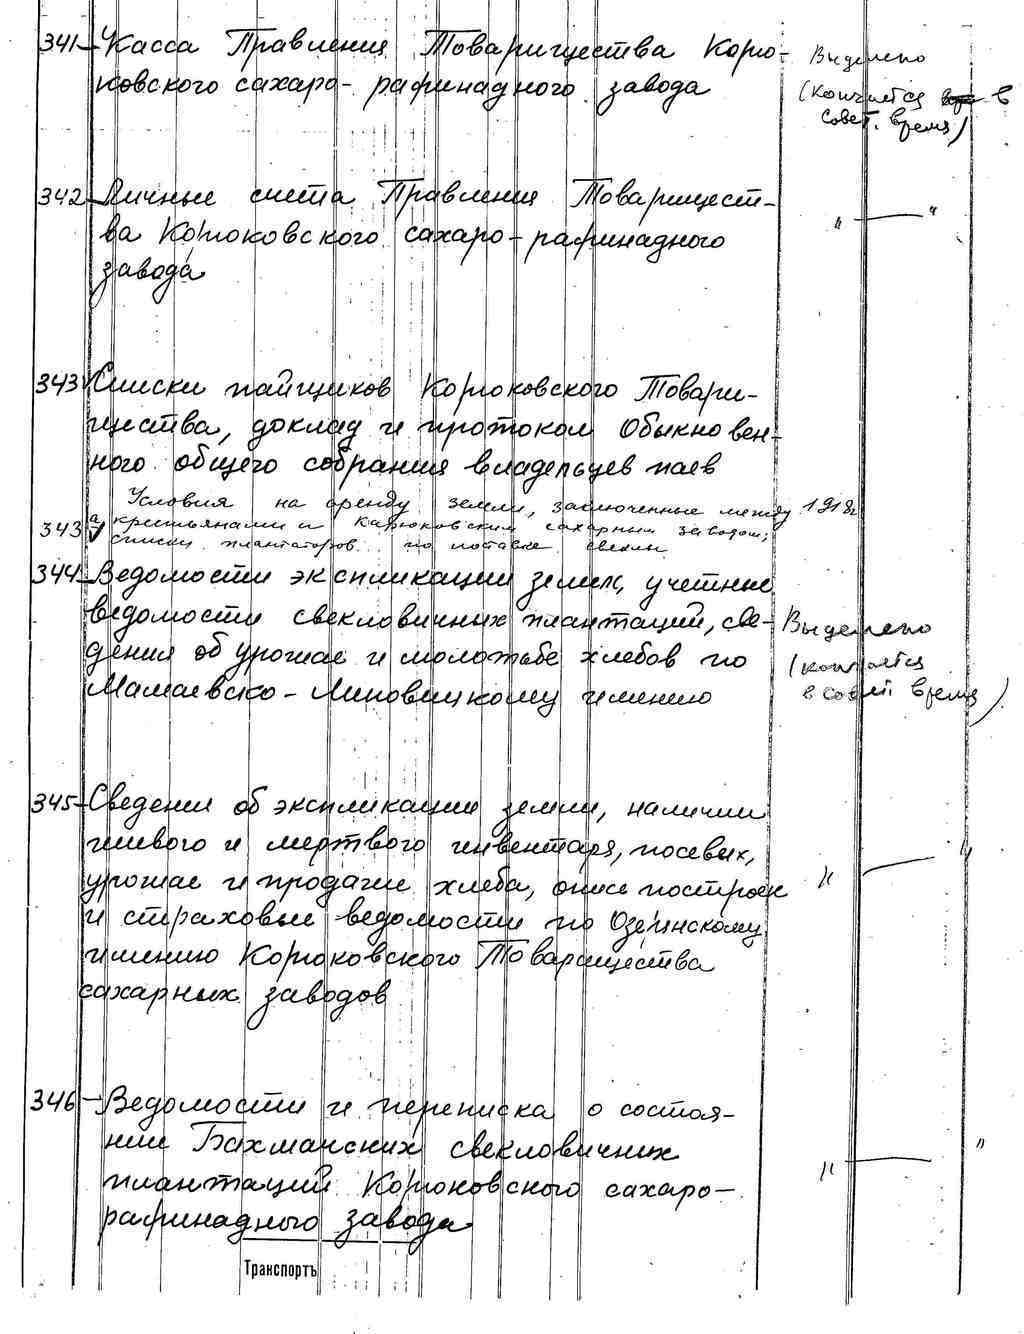 341 - Касса Правления Товарищества Корю- Выделено
ковского сахаро-рафинадного завода (кончается в
совет. время)
342 - Личные счета Правления Товарищест- " — "
ва Корюковского сахаро-рафинадного
завода
343 Списки пайщиков Корюковского Товари-
щества, доклад и протокол Обыкновен-
ного общего собрания владельцев паев
Условия на аренду земли, заключенные между 1918г
343 а крестьянами и Карюковским сахарным заводом;
списки плантаторов по поставке свеклы
344 - Ведомости экспликации земли, учетные
ведомости свекловичных плантаций, све- Выделено
дения об урожае и молотьбе хлебов по (кончается
Мамаевско-Линовицкому имению в совет. время)
345 - Сведения об экспликации земли, наличии
живого и мертвого инвентаря, посевах, " — "
урожае и продаже хлеба, описи построек
и страховые ведомости по Озерянскому
имению Корюковского Товарищества
сахарных заводов
346 - Ведомости и переписка о состоя-
нии Бахмачских свекловичных " — "
плантаций Корюковского сахаро-
рафинадного завода
Транспортъ